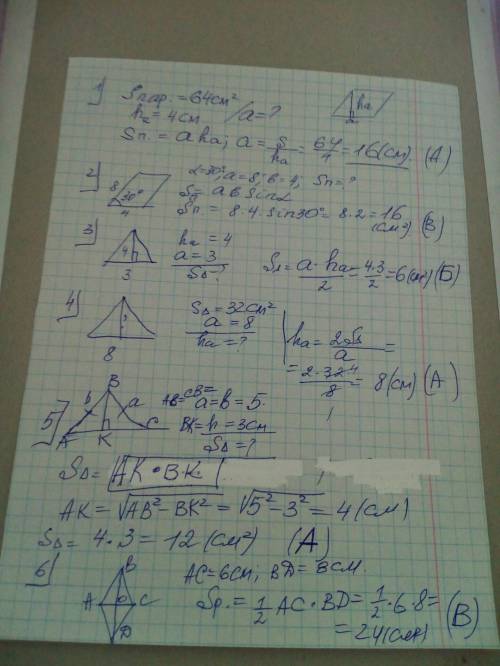 1) Sпар. = 64см²
hₐ = 4см / a = ?
hₐ
a
Sп. = a hₐ; a = S/hₐ = 64/4 = 16(см) (А)
2) α=30°; a=8; b=4; Sп=?
8 30° 4
S = a b sinα
Sп = 8·4·sin30° = 8·2 = 16 (см²) (В)
3) hₐ = 4
4
3
a = 3
S△?
S△ = a·hₐ/2 = 4·3/2 = 6(см²) (Б)
4) S△ = 32см²
a = 8
hₐ = ?
8
hₐ = 2S/a =
= 2·32 4/8 = 8(см) (А)
5) B b a A K C
AB=CB= a=b=5.
BK= h=3см
S△=?
S△ = AK·BK.
AK = √AB²−BK² = √5²−3² = 4(см)
S△ = 4·3 = 12(см²) (А)
6) AC=6см; BD=8см.
B A O C D
Sр. = 1/2 AC·BD = 1/2·6·8 =
= 24(см²) (В)